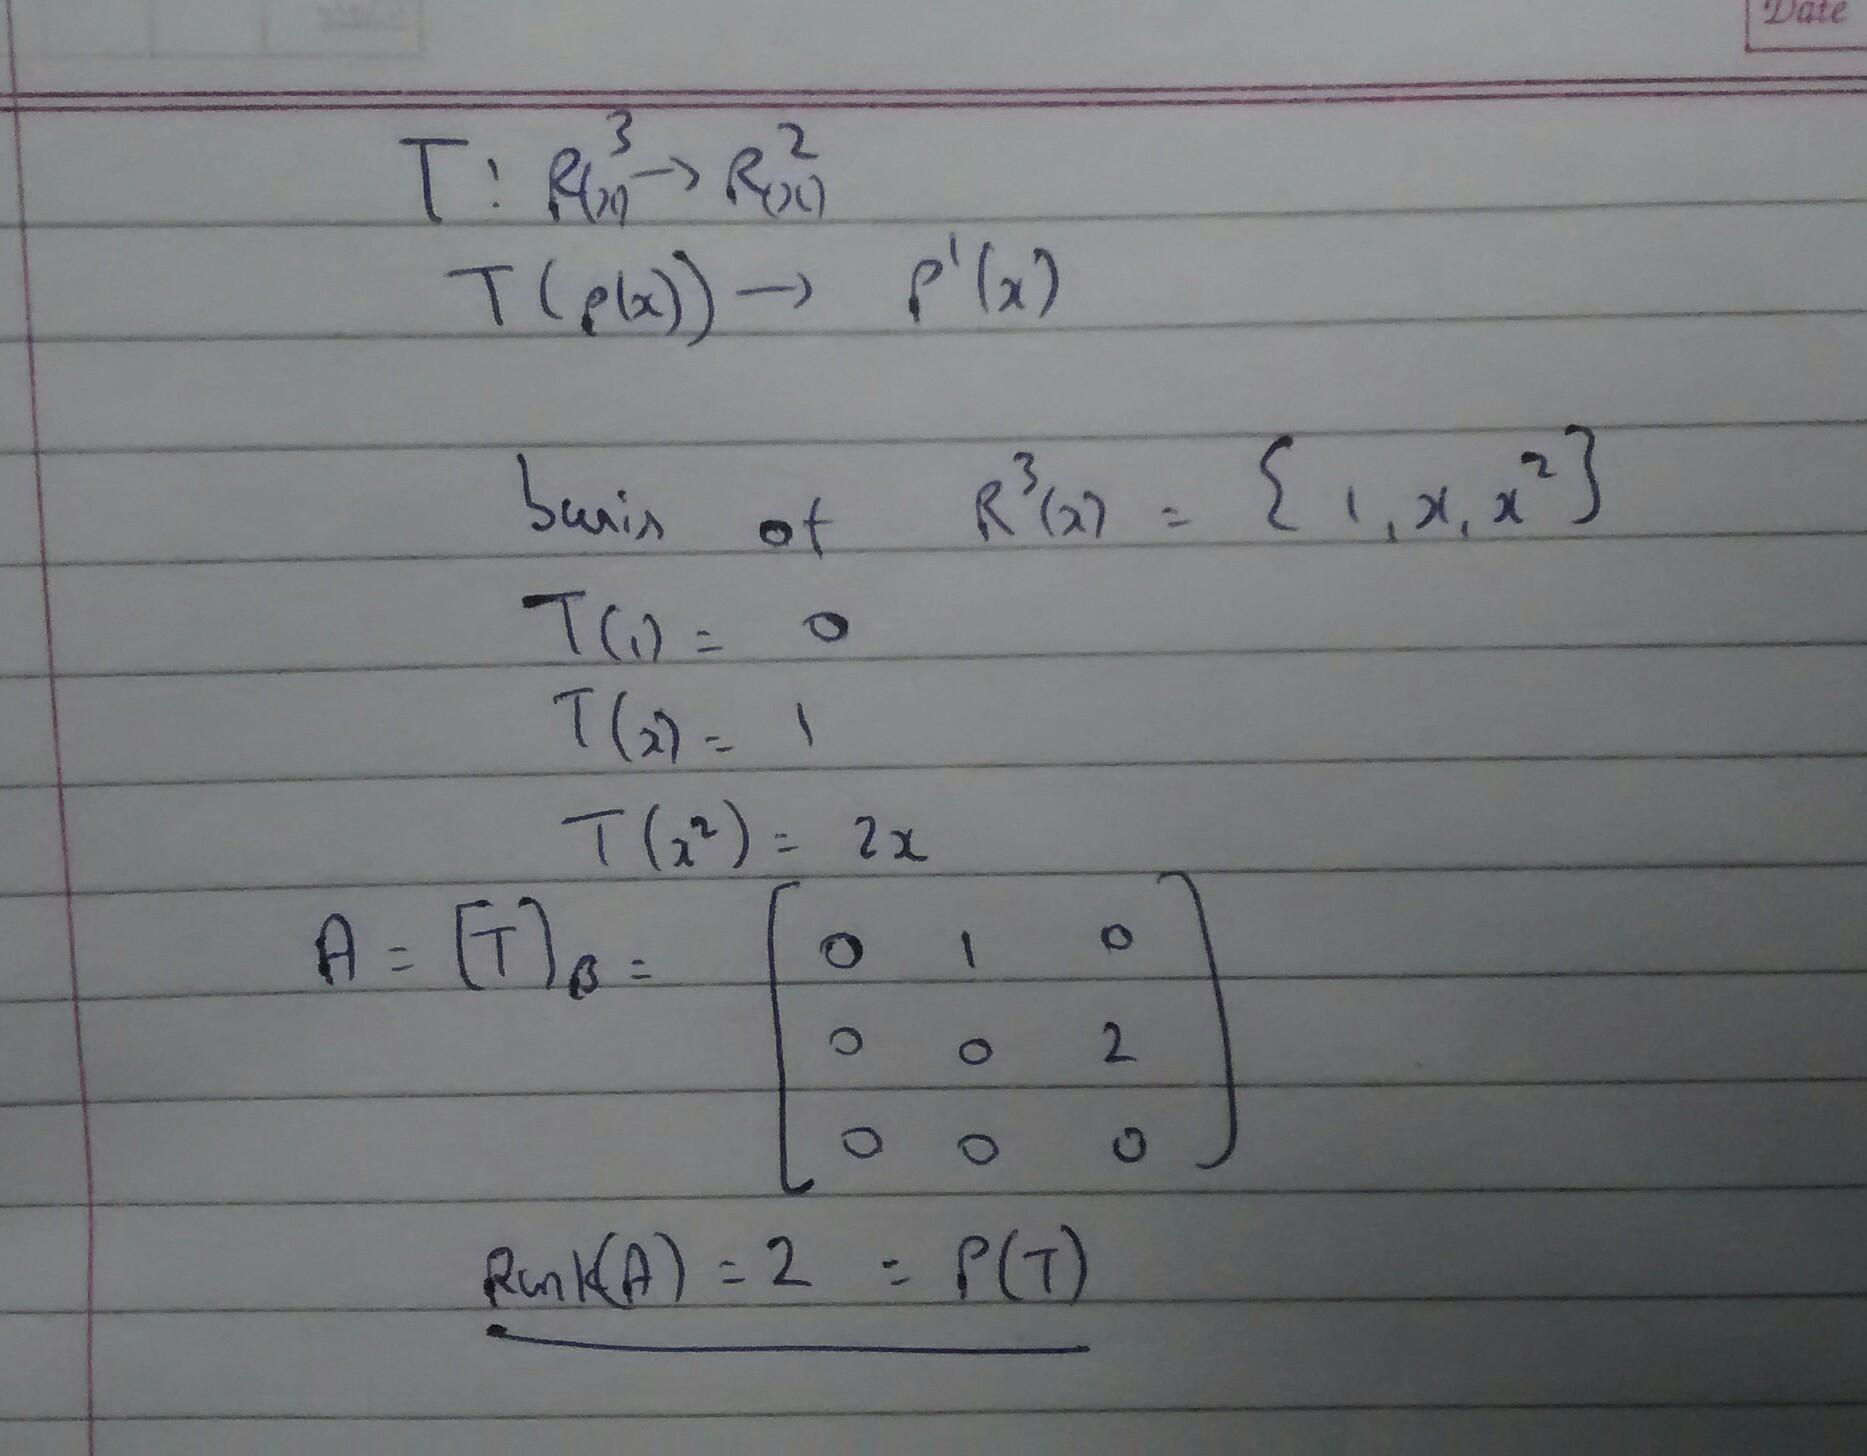 Date
T : R(x)³ → R(x)²
T(p(x)) → p'(x)
basis of R³(x) = {1, x, x²}
T(1) = 0
T(x) = 1
T(x²) = 2x
A = [T]_B = [0 1 0
0 0 2
0 0 0]
Rank(A) = 2 = P(T)